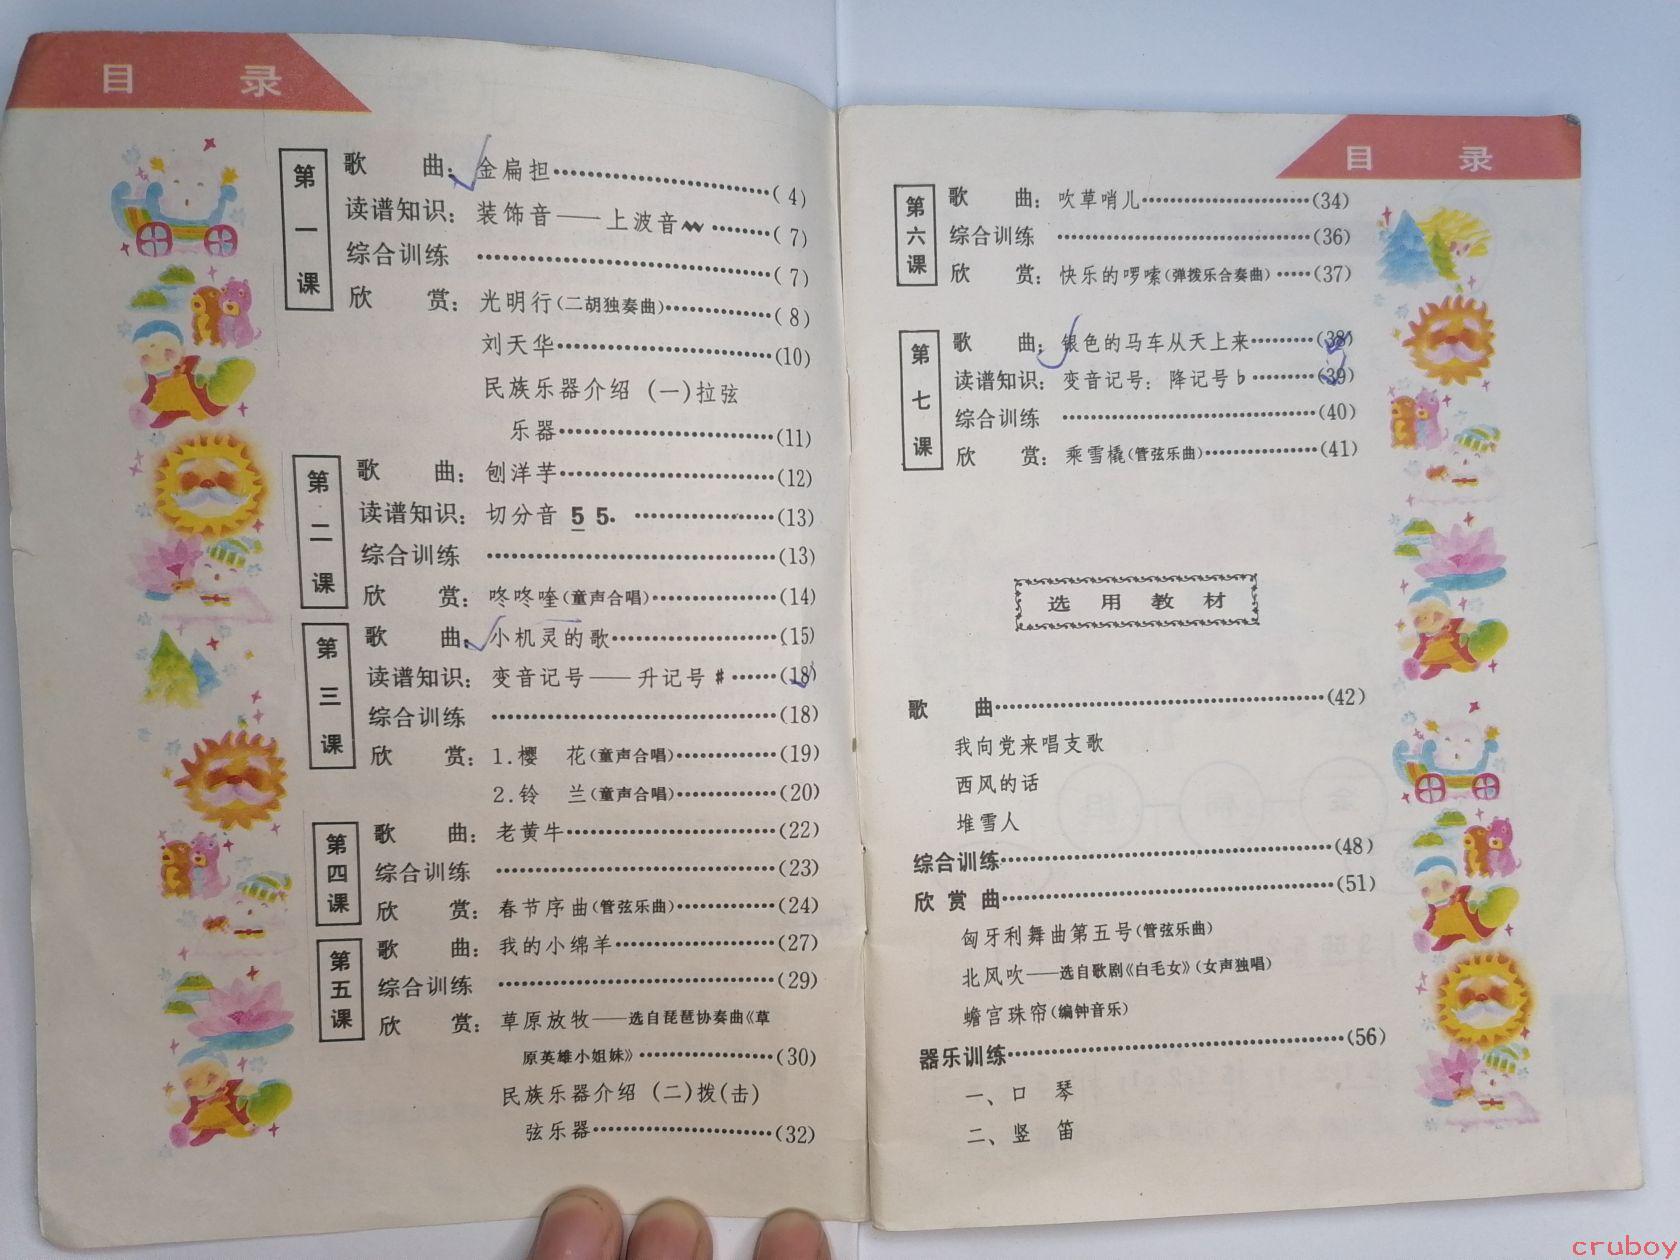 目 录
第一课
歌 曲：金扁担……(4)
读谱知识：装饰音——上波音……(7)
综合训练……(7)
欣 赏：光明行(二胡独奏曲)……(8)
刘天华……(10)
民族乐器介绍 (一)拉弦
乐器……(11)
第二课
歌 曲：刨洋芋……(12)
读谱知识：切分音 5 5·……(13)
综合训练……(13)
欣 赏：咚咚喹(童声合唱)……(14)
第三课
歌 曲：小机灵的歌……(15)
读谱知识：变音记号——升记号♯……(18)
综合训练……(18)
欣 赏：1.樱 花(童声合唱)……(19)
2.铃 兰(童声合唱)……(20)
第四课
歌 曲：老黄牛……(22)
综合训练……(23)
欣 赏：春节序曲(管弦乐曲)……(24)
第五课
歌 曲：我的小绵羊……(27)
综合训练……(29)
欣 赏：草原放牧——选自琵琶协奏曲《草
原英雄小姐妹》……(30)
民族乐器介绍 (二)拨(击)
弦乐器……(32)
目 录
第六课
歌 曲：吹草哨儿……(34)
综合训练……(36)
欣 赏：快乐的啰嗦(弹拨乐合奏曲)……(37)
第七课
歌 曲：银色的马车从天上来……(38)
读谱知识：变音记号：降记号♭……(39)
综合训练……(40)
欣 赏：乘雪橇(管弦乐曲)……(41)
选用教材
歌 曲……(42)
我向党来唱支歌
西风的话
堆雪人
综合训练……(48)
欣 赏 曲……(51)
匈牙利舞曲第五号(管弦乐曲)
北风吹——选自歌剧《白毛女》(女声独唱)
蟾宫珠帘(编钟音乐)
器乐训练……(56)
一、口 琴
二、竖 笛
cruboy